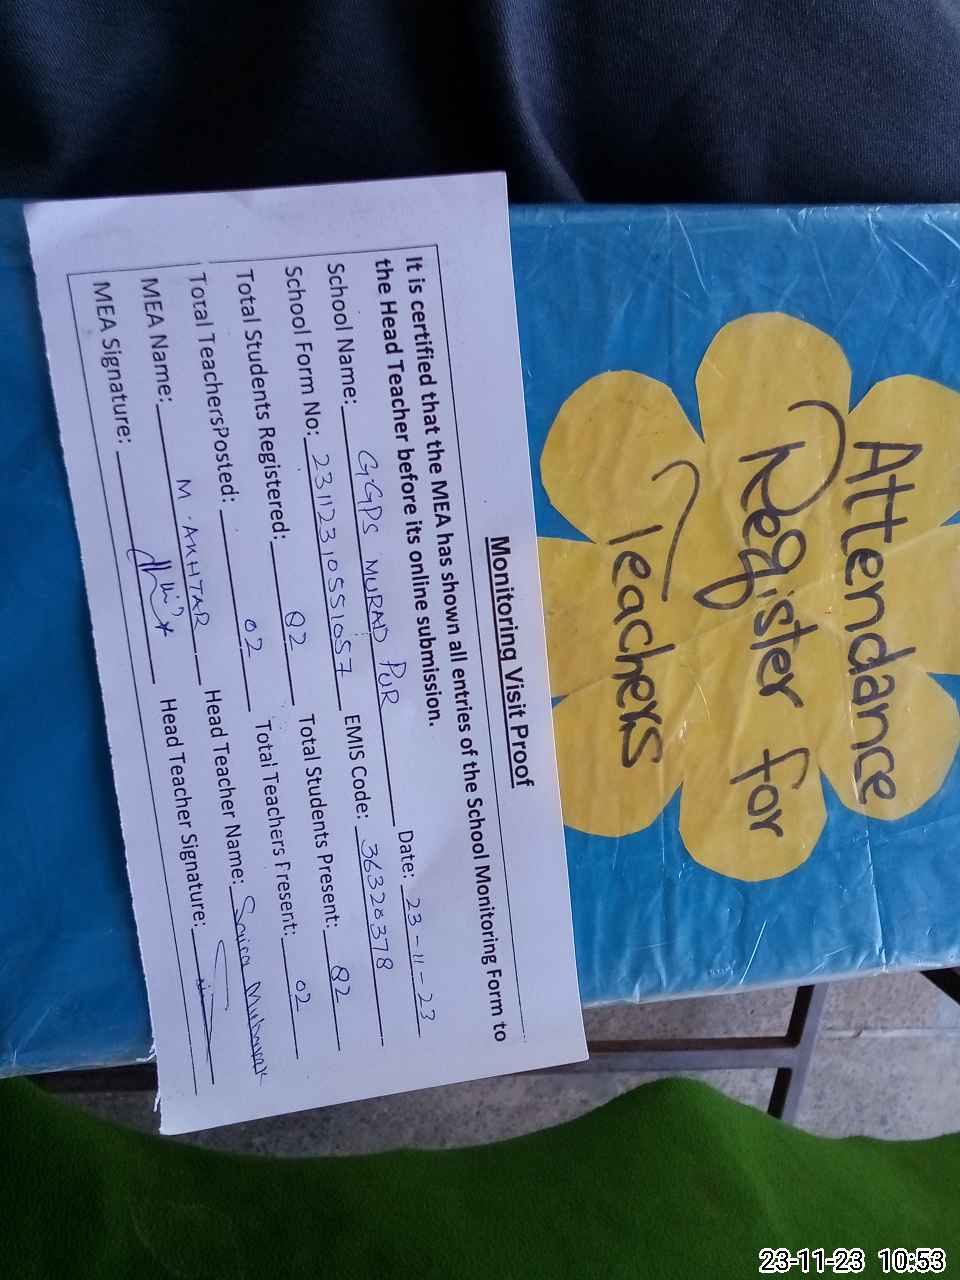 Attendance
Register for
Teachers
Monitoring Visit Proof
It is certified that the MEA has shown all entries of the School Monitoring Form to
the Head Teacher before its online submission.
School Name: GGPS MURAD PUR Date: 23-11-23
School Form No: 23112310551057 EMIS Code: 36320378
Total Students Registered: 82 Total Students Present: 82
Total TeachersPosted: 02 Total Teachers Present: 02
MEA Name: M. AKHTAR Head Teacher Name: Saira Mubarak
MEA Signature: Head Teacher Signature:
23-11-23 10:53